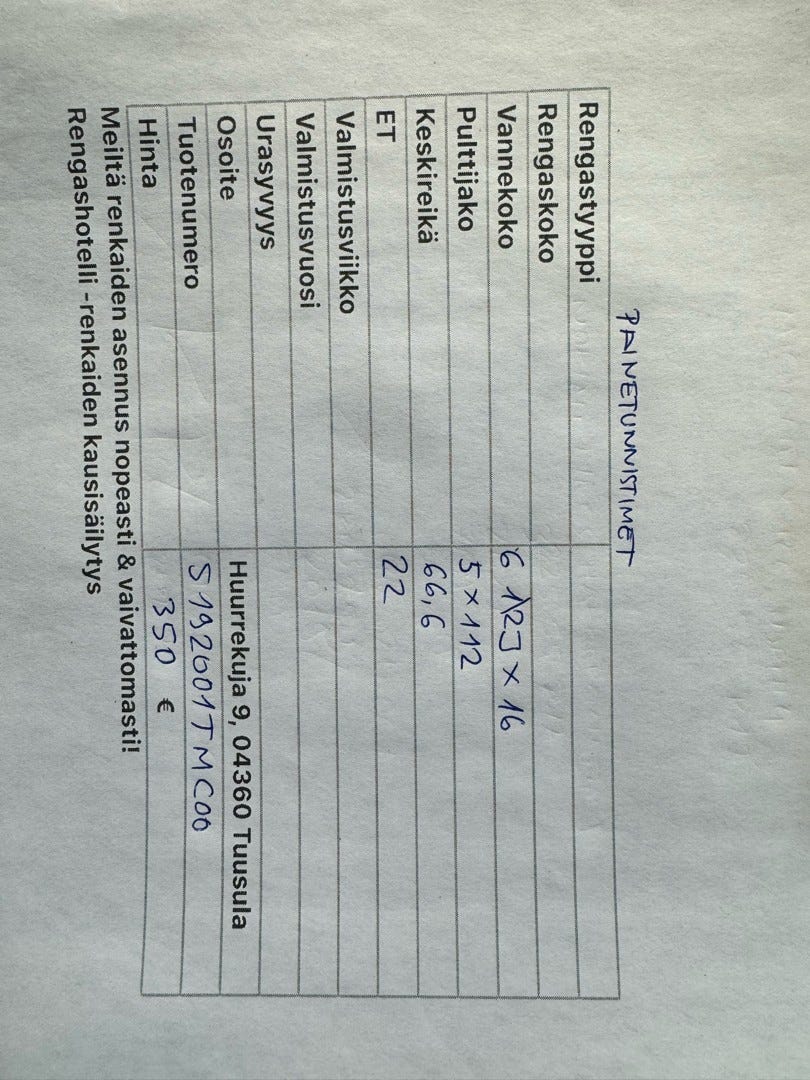 PAINETUNNISTIMET
Rengastyyppi
Rengaskoko
Vannekoko 6 1/2J x 16
Pulttijako 5 x 112
Keskireikä 66,6
ET 22
Valmistusviikko
Valmistusvuosi
Urasyvyys
Osoite Huurrekuja 9, 04360 Tuusula
Tuotenumero S192601TMC00
Hinta 350 €
Meiltä renkaiden asennus nopeasti & vaivattomasti!
Rengashotelli -renkaiden kausisäilytys